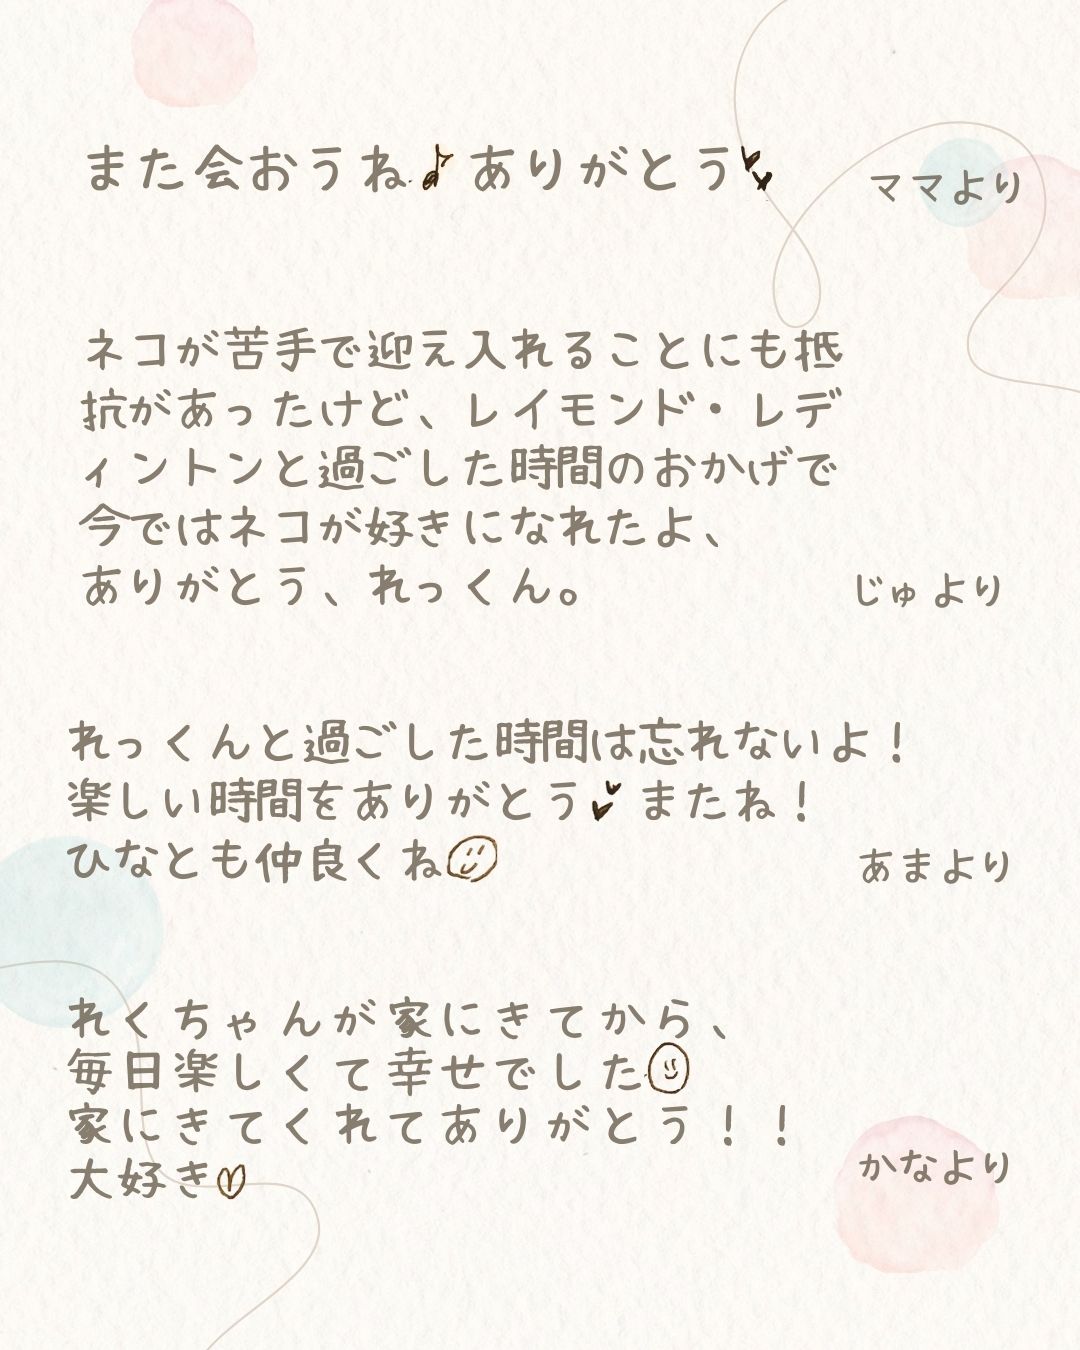 また会おうね♪ありがとう💕
ママより
ネコが苦手で迎え入れることにも抵
抗があったけど、レイモンド・レデ
ィントンと過ごした時間のおかげで
今ではネコが好きになれたよ、
ありがとう、れっくん。
じゅより
れっくんと過ごした時間は忘れないよ！
楽しい時間をありがとう💕またね！
ひなとも仲良くね☺
あまより
れくちゃんが家にきてから、
毎日楽しくて幸せでした☺
家にきてくれてありがとう！！
大好き♡
かなより